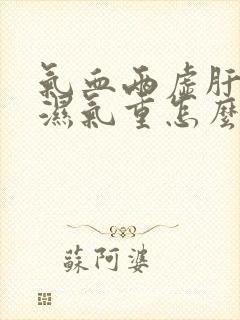 氣血兩虛肝
濕氣重怎麼
蘇阿婆